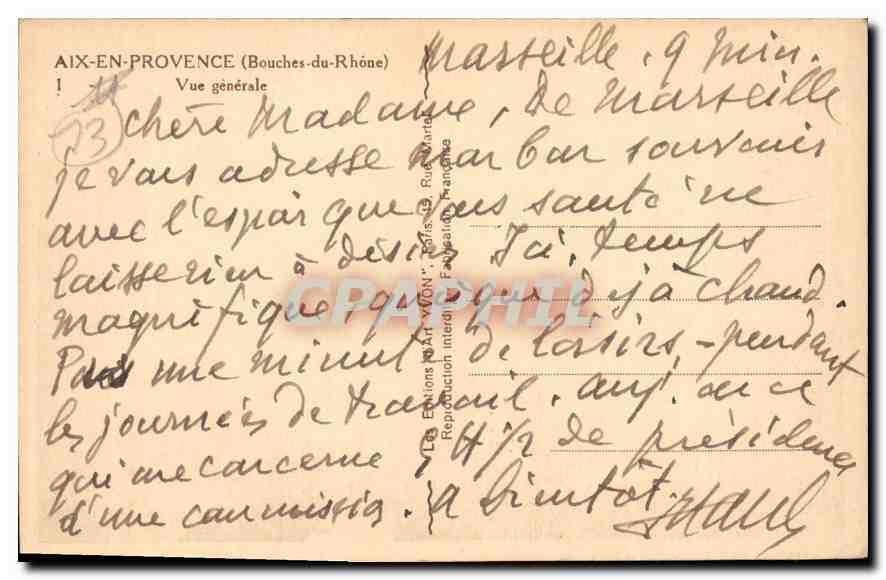 AIX-EN-PROVENCE (Bouches-du-Rhône)
1 Vue générale
13
Marseille, 9 Juin.
Chère Madame, De Marseille
je vous adresse mon bon souvenir
avec l'espoir que vous santé ne
laisse rien à désirer Ici, temps
magnifique, quoique déjà chaud.
Pas une minute de loisirs, - pendant
les journées de travail. auj. en ce
qui me concerne, 4 1/2 de présidence
d'une commission. a bientôt.
Les Editions d'Art YVON", Paris, 15, Rue Martel
Reproduction interdite Fabrication Française
CPAPHIL